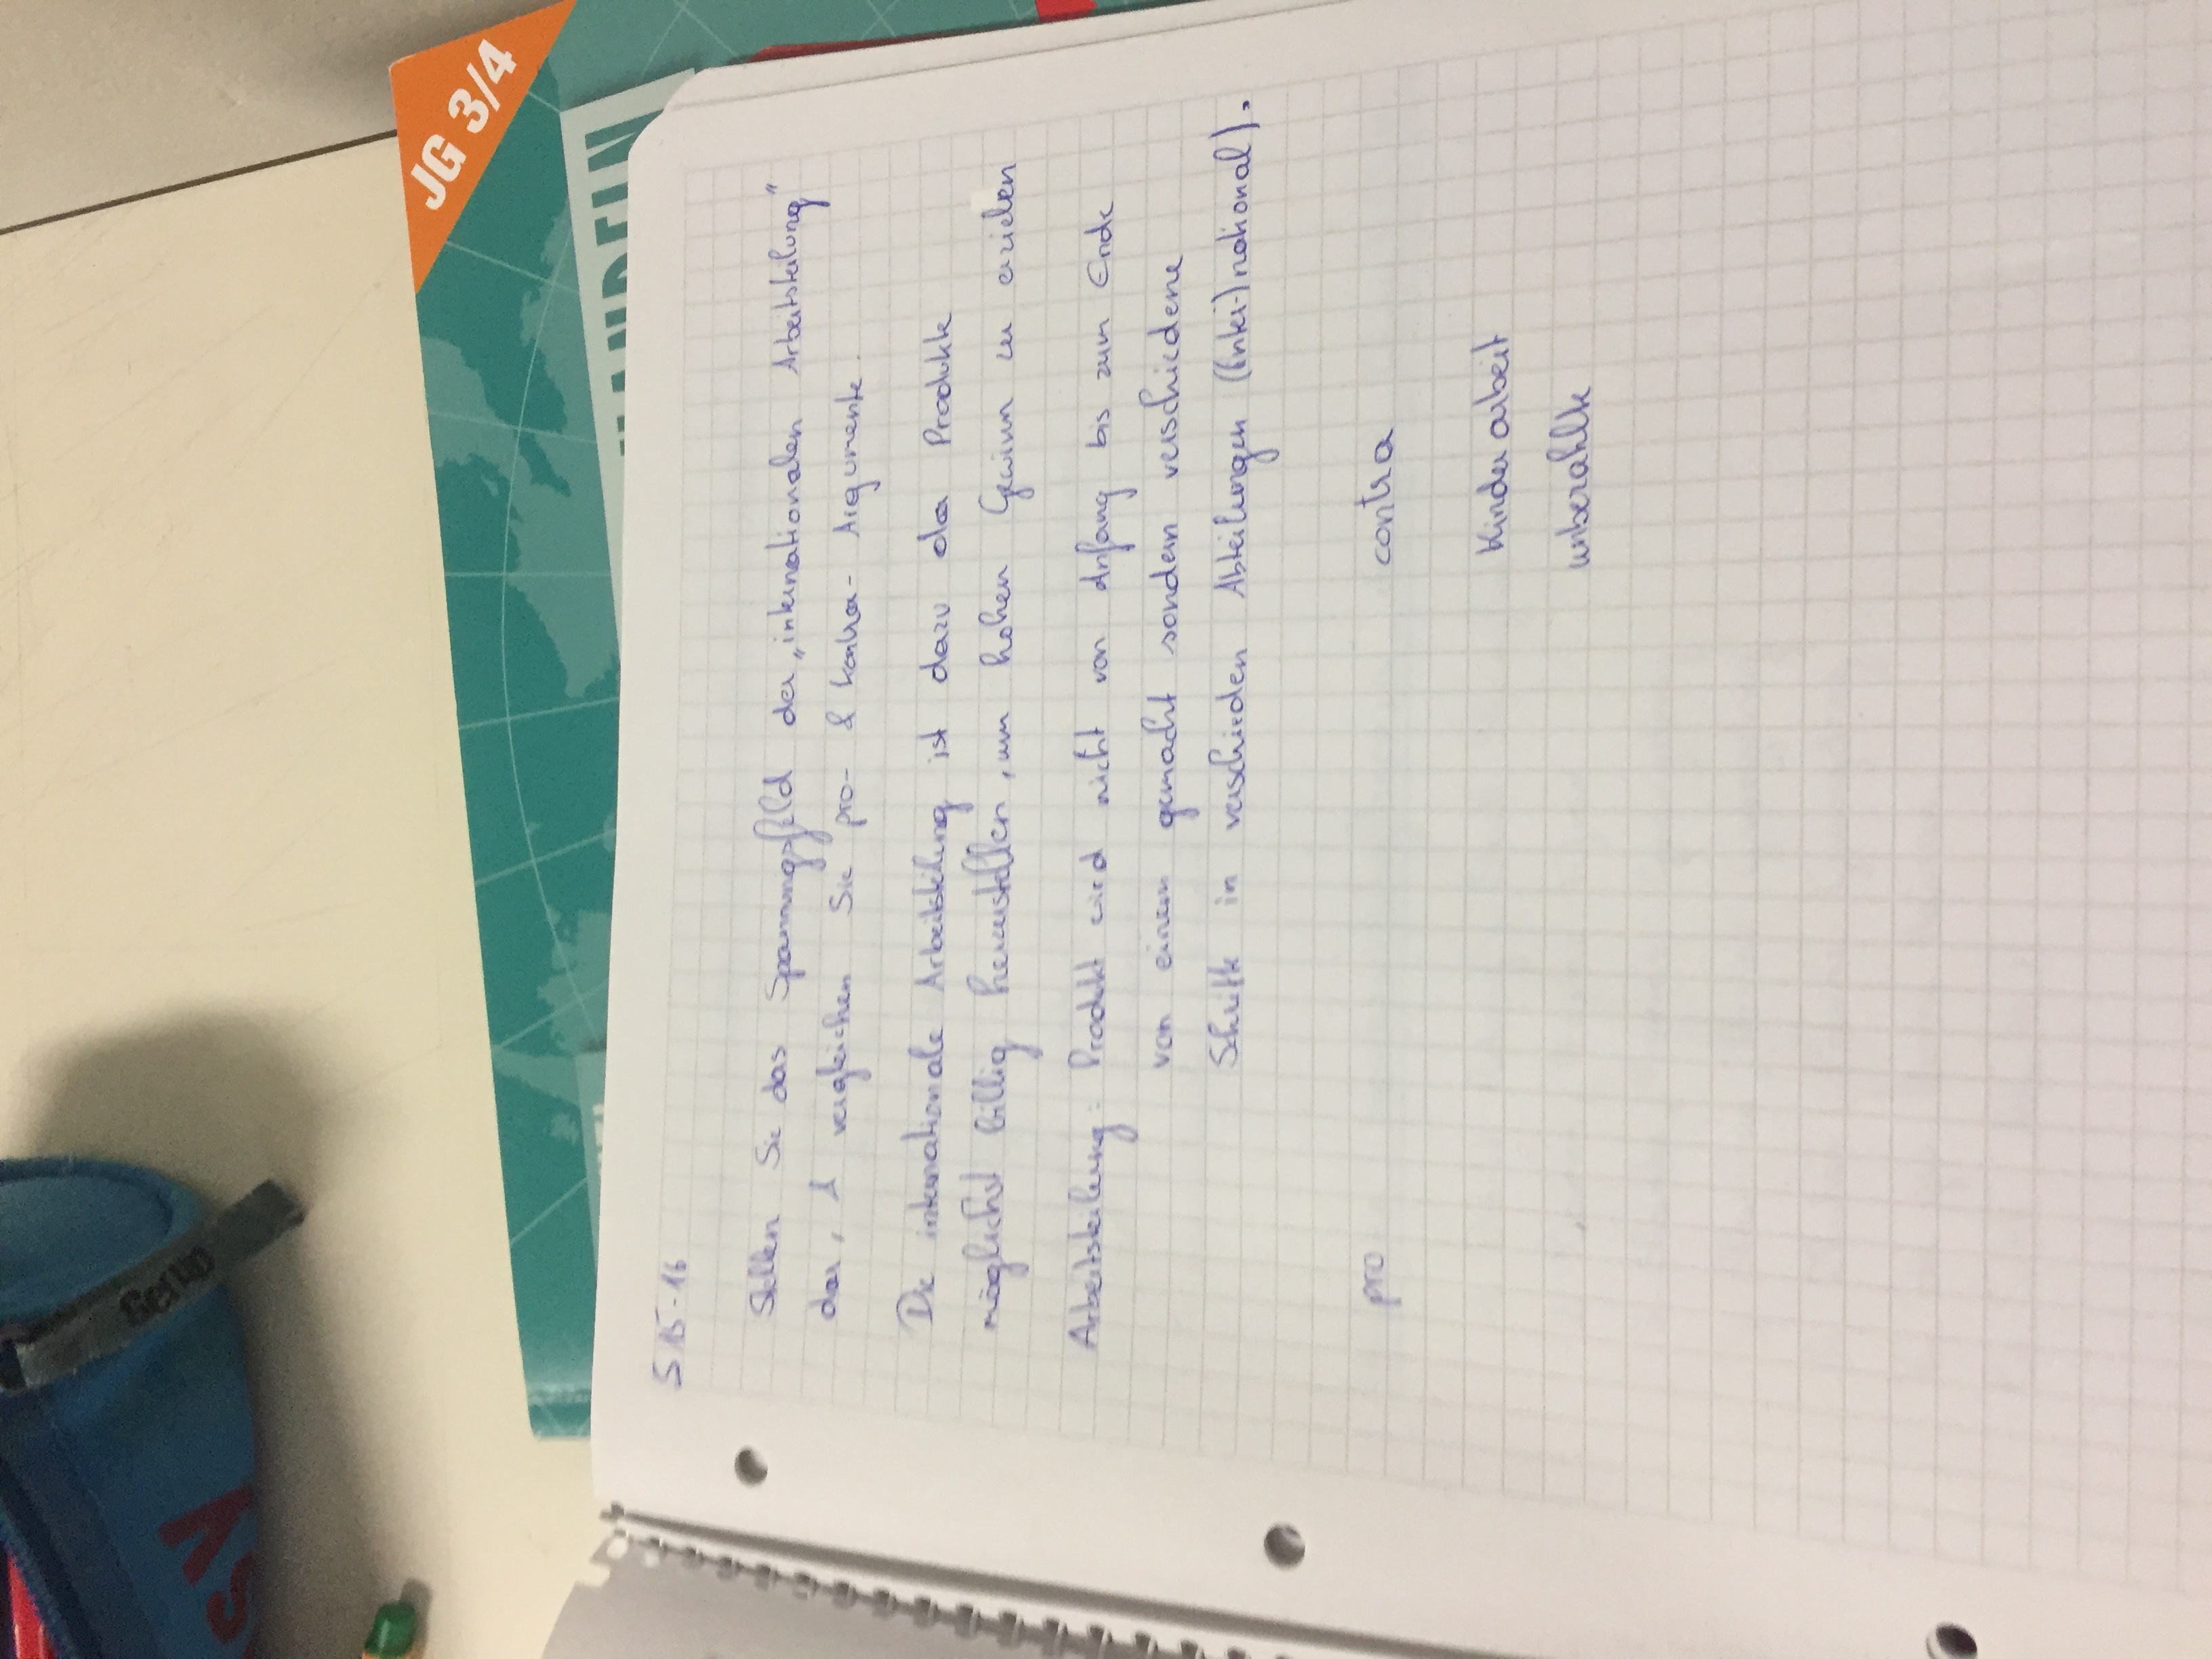 Get up
sy
JG 3/4
HANDELN
S 15-16
Stellen Sie das Spannungsfeld der „internationalen Arbeitsteilung"
dar, & vergleichen Sie pro- & kontra- Argumente.
Die internationale Arbeitsteilung ist dazu da Produkte
möglichst billig herzustellen, um hohen Gewinn zu erzielen
Arbeitsteilung: Produkt wird nicht von Anfang bis zum Ende
von einem gemacht sondern verschiedene
Schritte in verschieden Abteilungen ((inter-)national).
pro contra
Kinderarbeit
unbezahlte